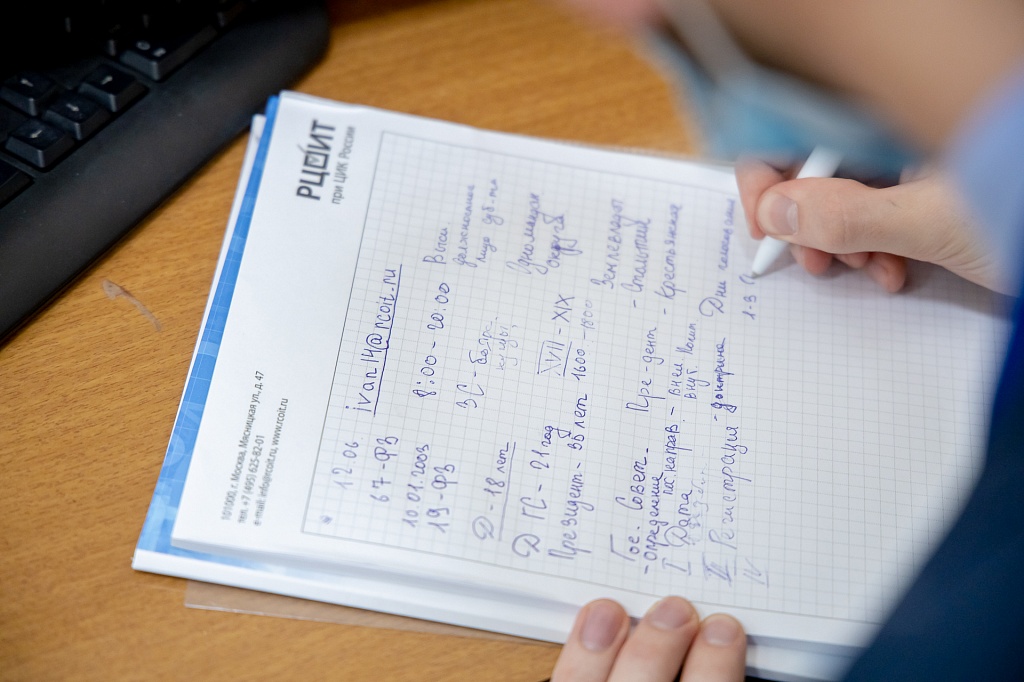 РЦОИТ
при ЦИК России
101000, г. Москва, Мясницкая ул., д. 47
тел. +7 (495) 625-82-01
e-mail: info@rcoit.ru, www.rcoit.ru
12 06 ivan14@rcoit.ru
67-ФЗ
10.01.2003 8:00 - 20:00 Высш.
19-ФЗ должностное
лицо суб-та
ЗС -
Д - 18 лет
Д ГС - 21 год округа
Президент - 35 лет XVII - XIX
1600 - 1800
Гос. Совет. Пре-дент - Столотий
- Определение нас направ - внеш. - Крестьянские
I Дата внут. Полит
II Регистрация - доктрина Дни голосования
IV 1-3